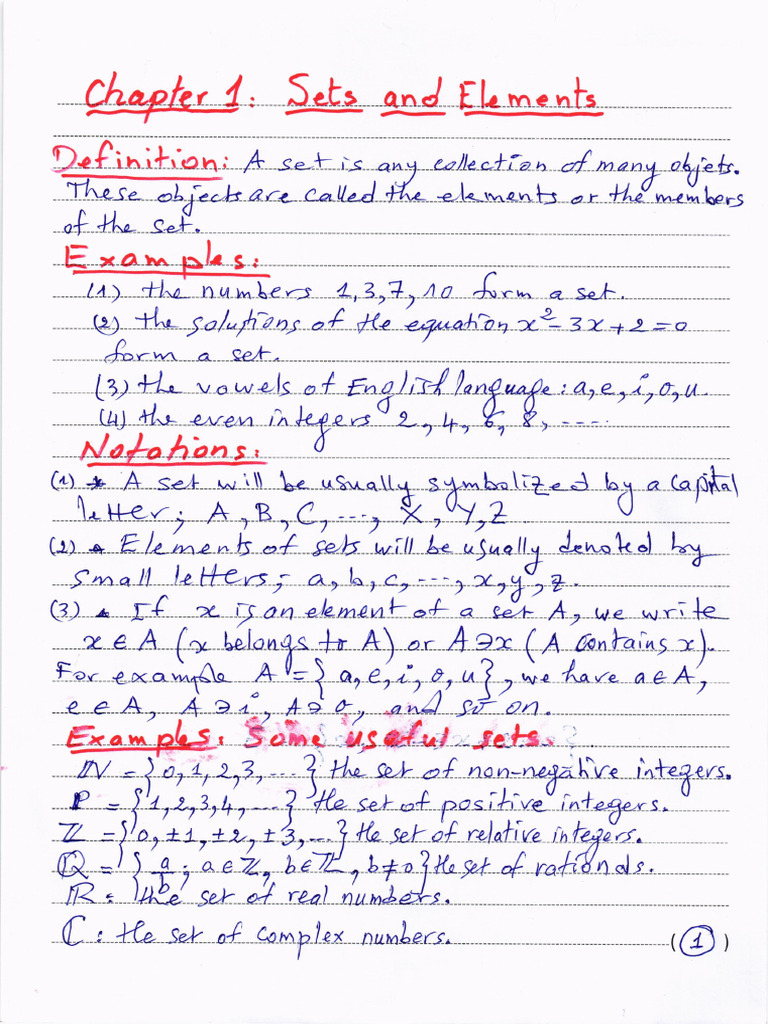 Chapter 1: Sets and Elements
Definition: A set is any collection of many objets.
These objects are called the elements or the members
of the set.
Examples:
(1) the numbers 1,3,7,10 form a set.
(2) the solutions of the equation x² - 3x + 2 = 0
form a set.
(3) the vowels of English language: a, e, i, o, u.
(4) the even integers 2, 4, 6, 8, ....
Notations:
(1) A set will be usually symbolized by a capital
letter; A, B, C, ..., X, Y, Z
(2) Elements of sets will be usually denoted by
small letters; a, b, c, ..., x, y, z.
(3) If x is an element of a set A, we write
x ∈ A (x belongs to A) or A ∋ x (A contains x).
For example A = {a, e, i, o, u}, we have a ∈ A,
e ∈ A, A ∋ i, A ∋ o, and so on.
Examples: Some useful sets.
ℕ = {0, 1, 2, 3, ...} the set of non-negative integers.
P = {1, 2, 3, 4, ...} the set of positive integers.
ℤ = {0, ±1, ±2, ±3, ...} the set of relative integers.
ℚ = {a/b ; a ∈ ℤ, b ∈ ℤ, b ≠ 0} the set of rationals.
ℝ: the set of real numbers.
ℂ: the set of complex numbers.
(1)